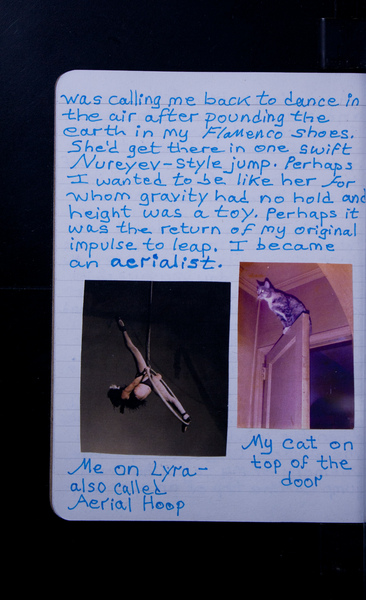 was calling me back to dance in
the air after pounding the
earth in my Flamenco shoes.
She'd get there in one swift
Nureyev-style jump. Perhaps
I wanted to be like her for
whom gravity had no hold and
height was a toy. Perhaps it
was the return of my original
impulse to leap. I became
an aerialist.
Me on Lyra-
also called
Aerial Hoop
My cat on
top of the
door